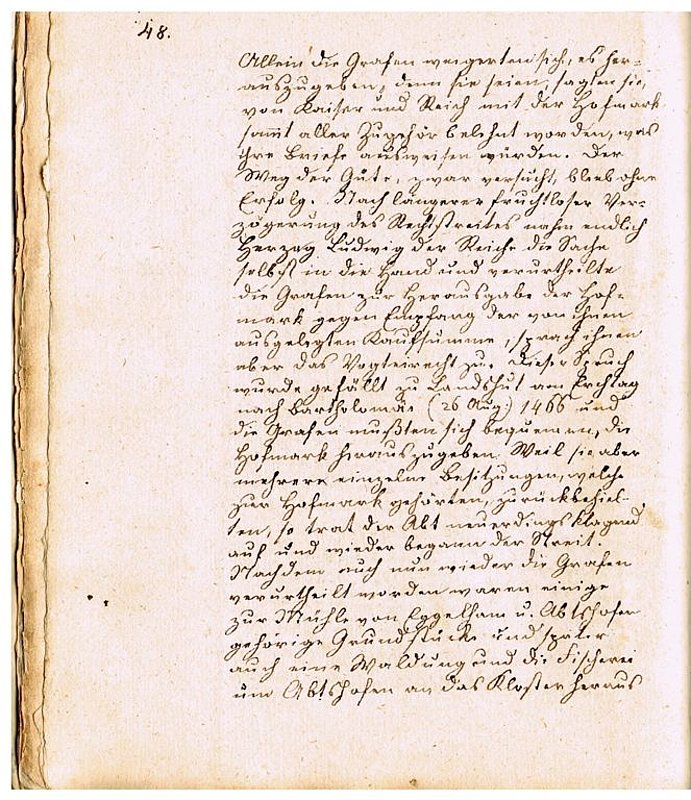 48.
Allein die Grafen weigerten sich, es her=
auszugeben, denn sie seien, sagten sie,
von Kaiser und Reich mit der Hofmark
sammt aller Zugehör belehnt worden, was
ihre Briefe ausweisen würden. Der
Weg der Güte, zwar versucht, blieb ohne
Erfolg. Nach längerer fruchtloser Ver=
zögerung des Rechtsstreites nahm endlich
Herzog Ludwig der Reiche die Sache
selbst in die Hand und verurtheilte
die Grafen zur Herausgabe der Hof=
mark gegen Empfang der von ihnen
ausgelegten Kaufsumme, sprach ihnen
aber das Vogteirecht zu. Dieser Spruch
wurde gefällt zu Landshut am Erchtag
nach Bartholomäi (26 Aug.) 1466 und
die Grafen mußten sich bequemen, die
Hofmark herauszugeben. Weil sie aber
mehrere einzelne Besitzungen, welche
zur Hofmark gehörten, zurückbehiel-
ten, so trat der Abt neuerdings klagend
auf und wieder begann der Streit.
Nachdem auch nun wieder die Grafen
verurtheilt worden waren einige
zur Mühle von Eggelham u. Abtshofen
gehörige Grundstücke und später
auch eine Waldung und die Fischerei
um Abtshofen an das Kloster heraus